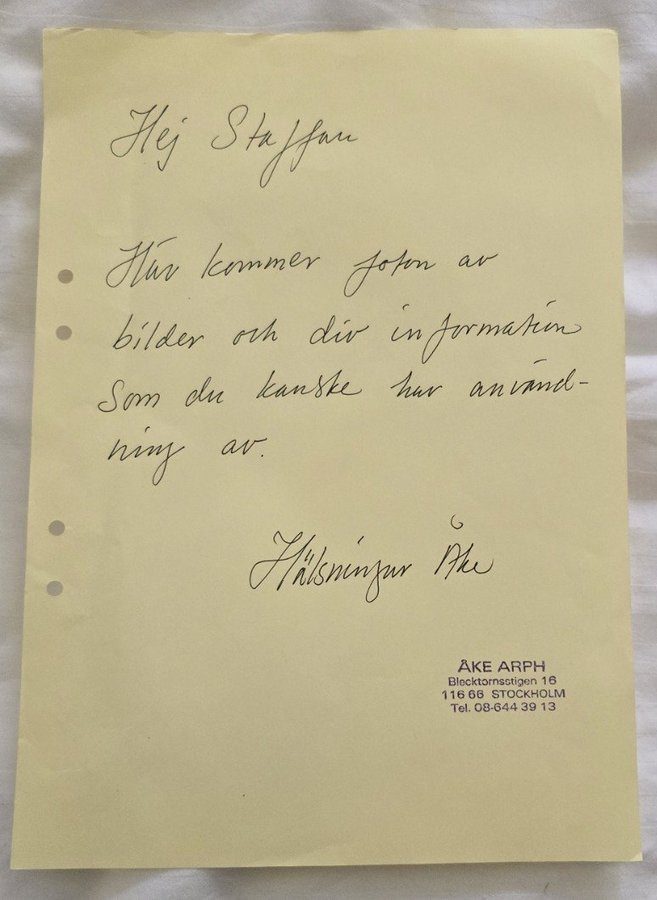 Hej Staffan
Här kommer foton av
bilder och div information
som du kanske har använd-
ning av.
Hälsningar Åke
ÅKE ARPH
Blecktornsstigen 16
116 66 STOCKHOLM
Tel. 08-644 39 13